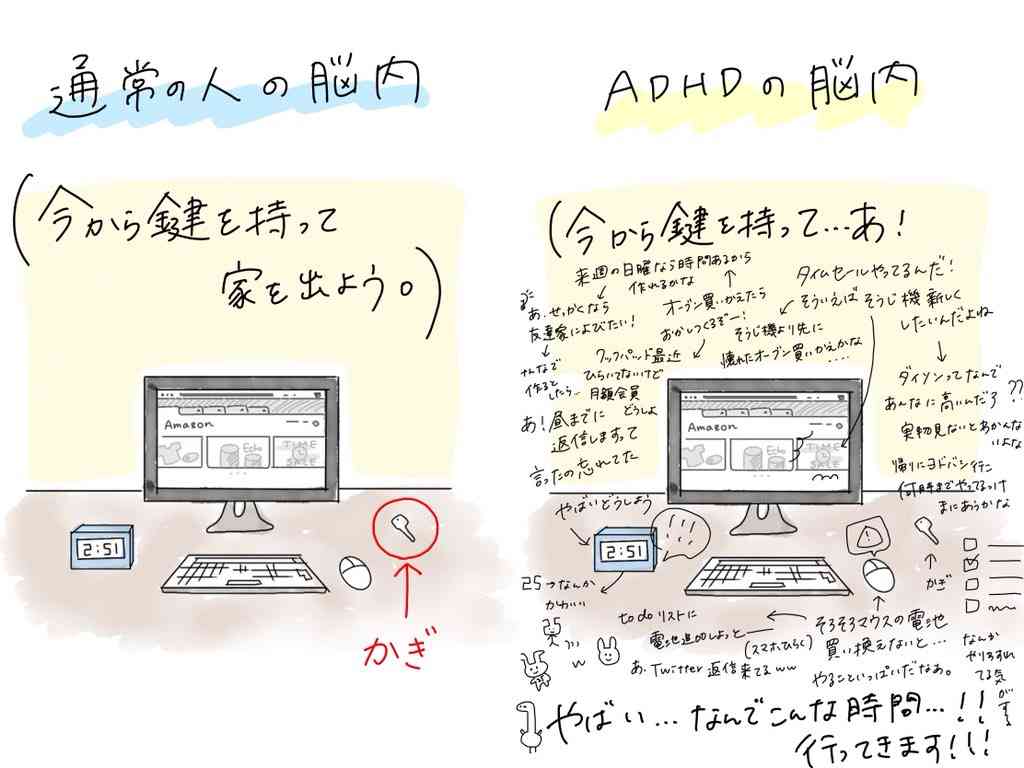 通常の人の脳内
(今から鍵を持って
家を出よう。)
Amazon
Echo
TIME
SALE
2:51
かぎ
ADHDの脳内
(今から鍵を持って…あ!
タイムセールやってるんだ!
そういえばそうじ機新しく
したいんだよね
ダイソンってなんで
あんなに高いんだろ??
実物見ないとあかんな
いよな
帰りにヨドバシ行こ
何時までやってるっけ
まにあうかな
そうじ機より先に
壊れたオーブン買いかえかな
....
オーブン買いかえたら
おかしつくるぞー!
来週の日曜なら時間あるから
作れるかな
あ、せっかくなら
友達家によびたい!
みんなで
作るとしたら…
クックパッド最近
ひらいてないけど
月額会員
どうしよ
あ!昼までに
返信しますって
言ったの忘れてた
やばいどうしよう
Amazon
Echo
TIME
SALE
2:51
!!!
!
かぎ
25→なんか
かわいい
25
w
そろそろマウスの電池
買い換えないと…
やること いっぱいだなあ。
to do リストに
電池追加しよっと
(スマホひらく)
あ、Twitter返信来てるww
なんか
やりわすれ
てる気
がする
やばい…なんでこんな時間…!!
行ってきます!!!